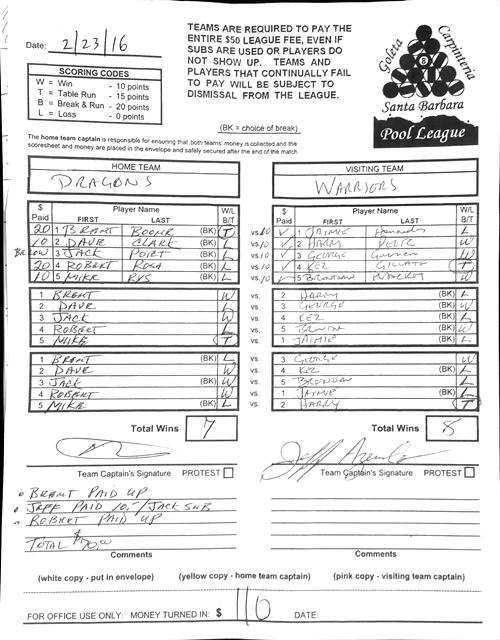 Date: 2/23/16
TEAMS ARE REQUIRED TO PAY THE
ENTIRE $50 LEAGUE FEE, EVEN IF
SUBS ARE USED OR PLAYERS DO
NOT SHOW UP. TEAMS AND
PLAYERS THAT CONTINUALLY FAIL
TO PAY WILL BE SUBJECT TO
DISMISSAL FROM THE LEAGUE.
Goleta
Carpinteria
8
Santa Barbara
Pool League
SCORING CODES
W = Win - 10 points
T = Table Run - 15 points
B = Break & Run - 20 points
L = Loss - 0 points
(BK = choice of break)
The home team captain is responsible for ensuring that both teams' money is collected and the
scoresheet and money are placed in the envelope and safely secured after the end of the match.
HOME TEAM
DRAGONS
VISITING TEAM
WARRIORS
$ Paid Player Name FIRST LAST W/L B/T
$ Paid Player Name FIRST LAST W/L B/T
20 1 BRENT BOONE (BK) T vs. 10 ✓ 1 JAIMIE L
10 2 DAVE CLARK (BK) L vs. 10 ✓ 2 HARRY W
3 JACK (BK) W vs. 10 ✓ 3 GEORGE L
20 4 ROBERT ROSA (BK) L vs. 10 ✓ 4 KEZ T
10 5 MIKE RYS (BK) L vs. 10 ✓ 5 BRENDAN W
1 BRENT W vs. 2 HARRY (BK) L
2 DAVE L vs. 3 GEORGE (BK) W
3 JACK W vs. 4 KEZ (BK) L
4 ROBERT L vs. 5 (BK) W
5 MIKE T vs. 1 JAIMIE (BK) L
1 BRENT (BK) L vs. 3 GEORGE W
2 DAVE W vs. 4 KEZ (BK) L
3 JACK (BK) W vs. 5 BRENDON L
4 ROBERT W vs. 1 JAIMIE (BK) L
5 MIKE (BK) L vs. 2 HARRY T
Total Wins 7
Total Wins 8
Team Captain's Signature PROTEST
Team Captain's Signature PROTEST
BRENT PAID UP
JEFF PAID 10,-/JACK SUB
ROBERT PAID UP
TOTAL $70,00
Comments
Comments
(white copy - put in envelope) (yellow copy - home team captain) (pink copy - visiting team captain)
FOR OFFICE USE ONLY: MONEY TURNED IN: $ 110 DATE: